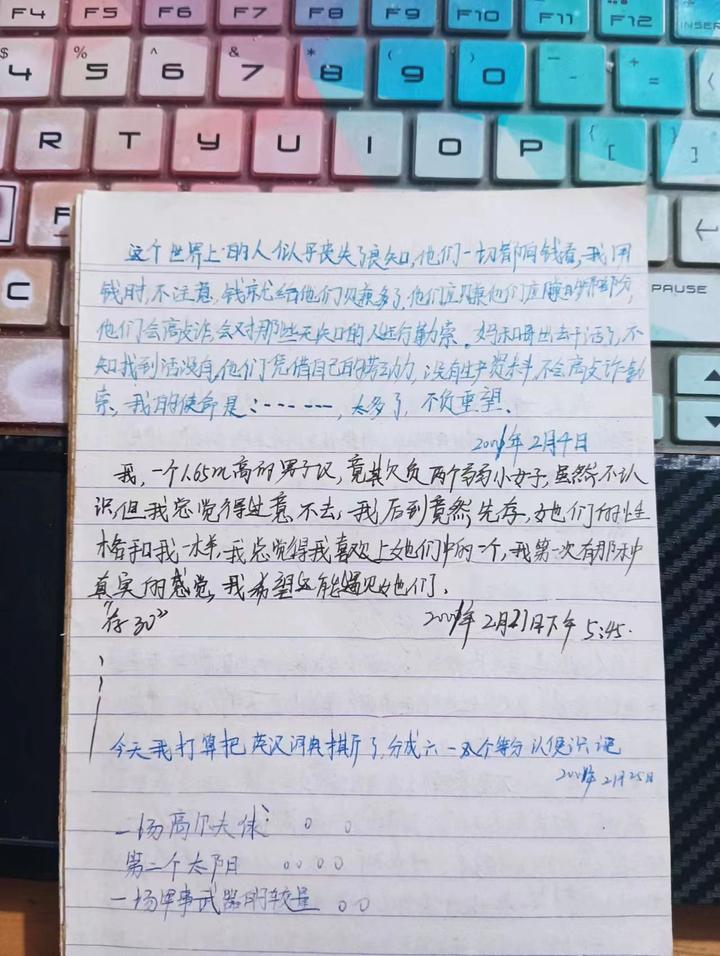 F4 F5 F6 F7 F8 F9 F10 F11 F12 INSER
$ 4 % 5 ^ 6 & 7 * 8 ( 9 ) 0 - + =
R T Y U I O P { [ } ]
F
C
PAUSE
这个世界上的人似乎丧失了良知,他们一切都向钱看,我用
钱时,不注意,钱就给他们
他们会敲诈,会对那些无知的人进行勒索。妈和哥出去干活了,不
知找到活没有,他们凭借自己的劳动力,没有生产资料,不会敲诈勒
索。我的使命是:------,太多了,不负重望。
2月4日
我,一个1.65m高的男子汉,竟欺负两个弱小女子,虽然不认
识,但我总觉得过意不去,我后到竟然先存,她们的性
格和我一样,我总觉得我喜欢上她们中的一个,我第一次有那种
真实的感觉,我希望还能遇见她们.
“存30”
2月21日下午 5:45.
今天我打算把英汉词典撕了,分成六一 个等分以便识记
2月25日
一场高尔夫球: 。 。
第二个太阳 。。。。
一场军事武器的较量 。。